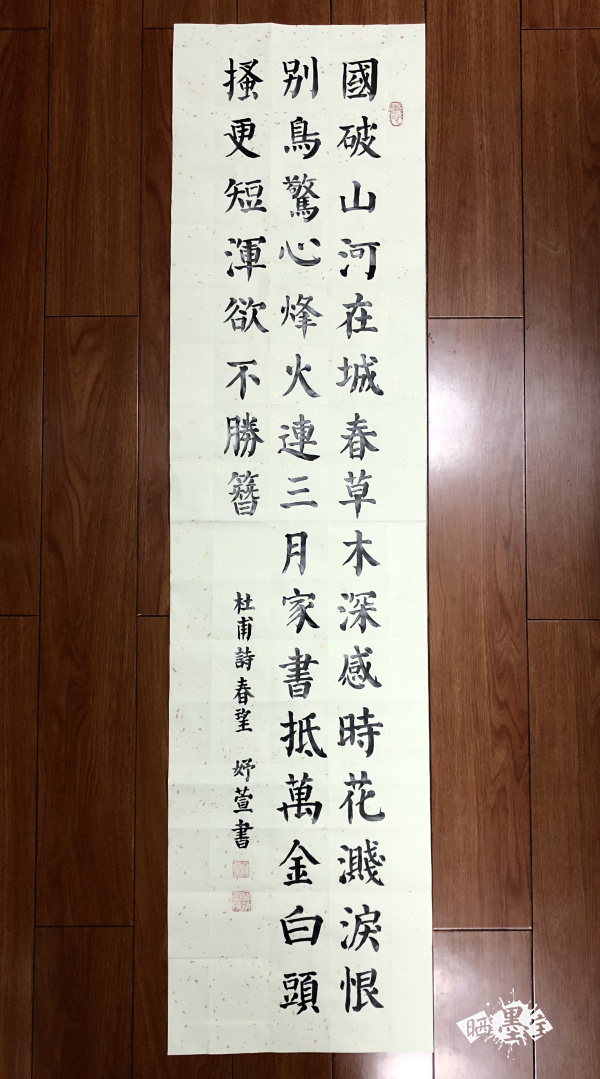 國破山河在城春草木深感時花濺淚恨
别鳥驚心烽火連三月家書抵萬金白頭
搔更短渾欲不勝簪
杜甫詩春望 妤萱書
晒墨宝